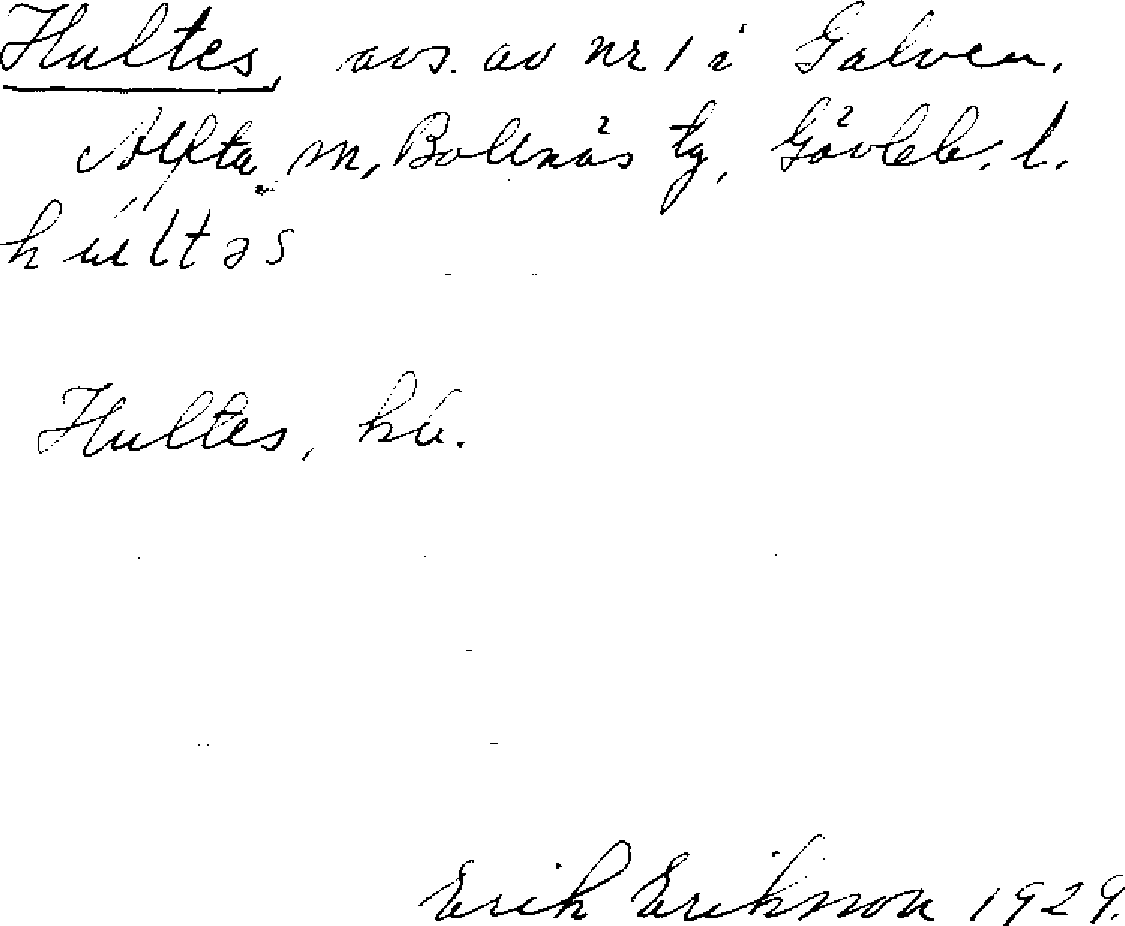 Hultes, avs. av nr 1 i Galven.
Alfta, m, Bollnäs tg, Gävleb. l.
hultəs
Hultes, hb.
Erik Erikson 1929.